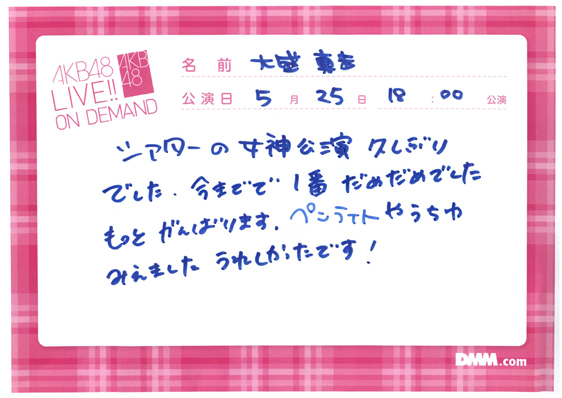 AKB48
LIVE!!
ON DEMAND
AKB
48
名前 大盛 真歩
公演日 5月25日 18:00 公演
シアターの女神公演 久しぶり
でした. 今までで 1番 だめだめでした
もっと がんばります. ペンライトやうちわ
みえました うれしかったです!
DMM.com